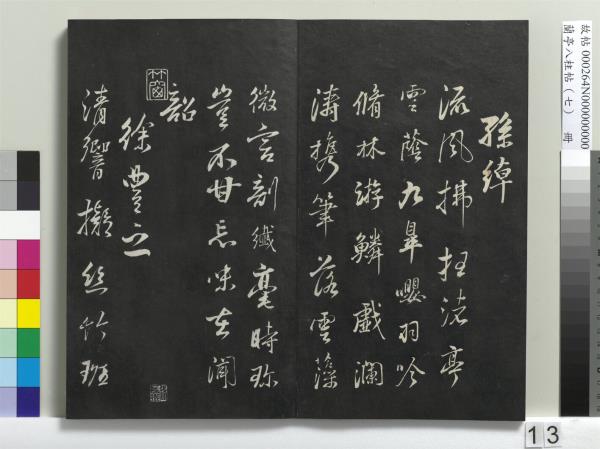 孫綽
流風拂枉渚亭
雲蔭九皋嚶羽吟
脩林游鱗戲瀾
濤攜筆落雲藻
微言剖纖毫時珍
豈不甘忘味在聞
韶
徐豐之
清響擬絲竹班
竹窗
故帖 000264N000000000
蘭亭八柱帖（七） 冊
13